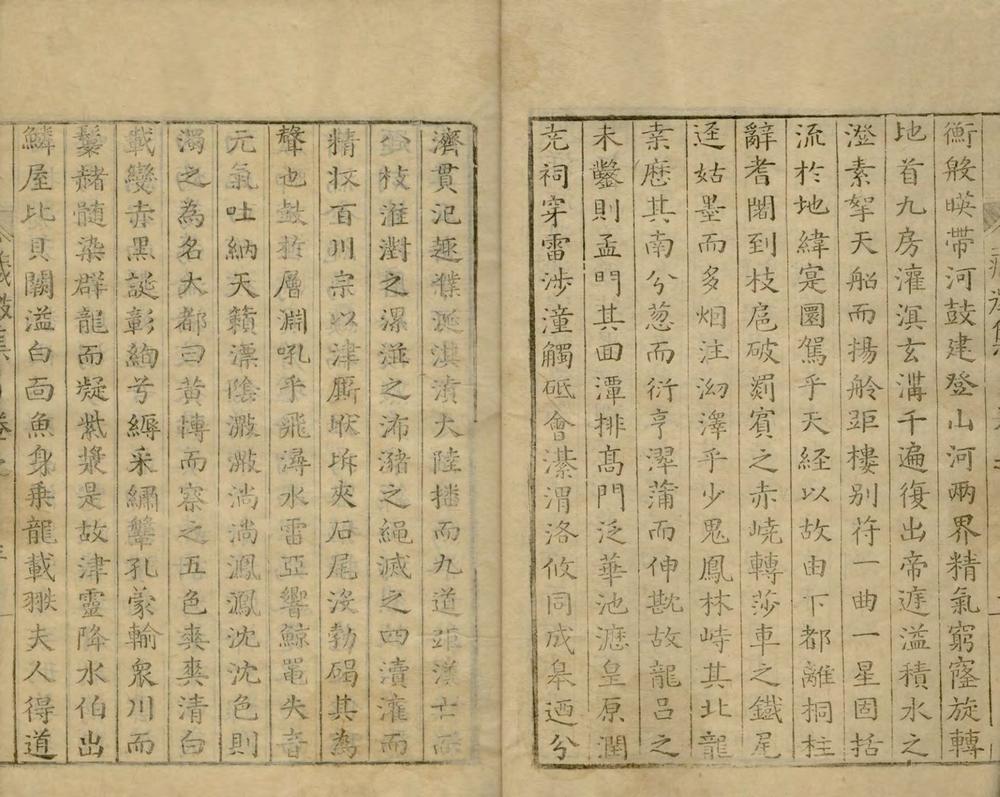 衡般暎帶河鼓建登山河兩界精氣窮窿旋轉
地首九房灌滇玄溝千遍復出帝遅溢積水之
澄素挐天船而揚舲距樓别符一曲一星固括
流於地緯寔圜駕乎天経以故由下都離桐柱
辭耆闍到枝扈破罽賓之赤嶢轉莎車之鐵尾
逕姑墨而多烟注泑澤乎少鬼鳳林峙其北龍
桒歴其南兮蔥而衍亨澤蒲而伸戡故龍吕之
未鑿則孟門其面潭排髙門泛華池瀍皇原潤
尭祠穿雷涉潼觸砥會潗渭洛攸同成皋迺兮
濟貫汜趣濮涎淇濱大陸播而九道
枝淮對之漯湴之沛瀦之繩滅之四瀆灌而
精状百川宗以津厮吠坼夾石尾沒勃碣其為
聲也鼓於層淵吼乎飛潯水雷亞響鯨鼍失音
元氣吐納天籟漂隂潎潎淌淌灟灟沈沈色則
濁之為名大都曰黄慱而察之五色奭奭清白
載變赤黒誕彰絢兮縟采繡鞶孔蒙輸衆川而
鬟赭髄染群龍而凝紫漿是故津靈降水伯出
鱗屋比貝闕溢白面魚身乗龍載翐夫人得道